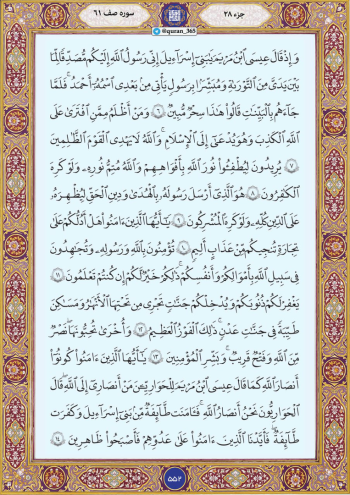 جزء ۲۸
سوره صف ۶۱
@quran_365
وَإِذْ قَالَ عِيسَى ٱبْنُ مَرْيَمَ يَٰبَنِىٓ إِسْرَٰٓءِيلَ إِنِّى رَسُولُ ٱللَّهِ إِلَيْكُم مُّصَدِّقًا لِّمَا
بَيْنَ يَدَىَّ مِنَ ٱلتَّوْرَىٰةِ وَمُبَشِّرًۢا بِرَسُولٍ يَأْتِى مِنۢ بَعْدِى ٱسْمُهُۥٓ أَحْمَدُ ۖ فَلَمَّا
جَآءَهُم بِٱلْبَيِّنَٰتِ قَالُوا۟ هَٰذَا سِحْرٌ مُّبِينٌ ۝٦ وَمَنْ أَظْلَمُ مِمَّنِ ٱفْتَرَىٰ عَلَى
ٱللَّهِ ٱلْكَذِبَ وَهُوَ يُدْعَىٰٓ إِلَى ٱلْإِسْلَٰمِ ۚ وَٱللَّهُ لَا يَهْدِى ٱلْقَوْمَ ٱلظَّٰلِمِينَ
۝٧ يُرِيدُونَ لِيُطْفِـُٔوا۟ نُورَ ٱللَّهِ بِأَفْوَٰهِهِمْ وَٱللَّهُ مُتِمُّ نُورِهِۦ وَلَوْ كَرِهَ
ٱلْكَٰفِرُونَ ۝٨ هُوَ ٱلَّذِىٓ أَرْسَلَ رَسُولَهُۥ بِٱلْهُدَىٰ وَدِينِ ٱلْحَقِّ لِيُظْهِرَهُۥ
عَلَى ٱلدِّينِ كُلِّهِۦ وَلَوْ كَرِهَ ٱلْمُشْرِكُونَ ۝٩ يَٰٓأَيُّهَا ٱلَّذِينَ ءَامَنُوا۟ هَلْ أَدُلُّكُمْ عَلَىٰ
تِجَٰرَةٍ تُنجِيكُم مِّنْ عَذَابٍ أَلِيمٍ ۝١٠ تُؤْمِنُونَ بِٱللَّهِ وَرَسُولِهِۦ وَتُجَٰهِدُونَ
فِى سَبِيلِ ٱللَّهِ بِأَمْوَٰلِكُمْ وَأَنفُسِكُمْ ۚ ذَٰلِكُمْ خَيْرٌ لَّكُمْ إِن كُنتُمْ تَعْلَمُونَ ۝١١
يَغْفِرْ لَكُمْ ذُنُوبَكُمْ وَيُدْخِلْكُمْ جَنَّٰتٍ تَجْرِى مِن تَحْتِهَا ٱلْأَنْهَٰرُ وَمَسَٰكِنَ
طَيِّبَةً فِى جَنَّٰتِ عَدْنٍ ۚ ذَٰلِكَ ٱلْفَوْزُ ٱلْعَظِيمُ ۝١٢ وَأُخْرَىٰ تُحِبُّونَهَا ۖ نَصْرٌ
مِّنَ ٱللَّهِ وَفَتْحٌ قَرِيبٌ ۗ وَبَشِّرِ ٱلْمُؤْمِنِينَ ۝١٣ يَٰٓأَيُّهَا ٱلَّذِينَ ءَامَنُوا۟ كُونُوٓا۟
أَنصَارَ ٱللَّهِ كَمَا قَالَ عِيسَى ٱبْنُ مَرْيَمَ لِلْحَوَارِيِّـۧنَ مَنْ أَنصَارِىٓ إِلَى ٱللَّهِ ۖ قَالَ
ٱلْحَوَارِيُّونَ نَحْنُ أَنصَارُ ٱللَّهِ ۖ فَـَٔامَنَت طَّآئِفَةٌ مِّنۢ بَنِىٓ إِسْرَٰٓءِيلَ وَكَفَرَت
طَّآئِفَةٌ ۖ فَأَيَّدْنَا ٱلَّذِينَ ءَامَنُوا۟ عَلَىٰ عَدُوِّهِمْ فَأَصْبَحُوا۟ ظَٰهِرِينَ ۝١٤
۵۵۲